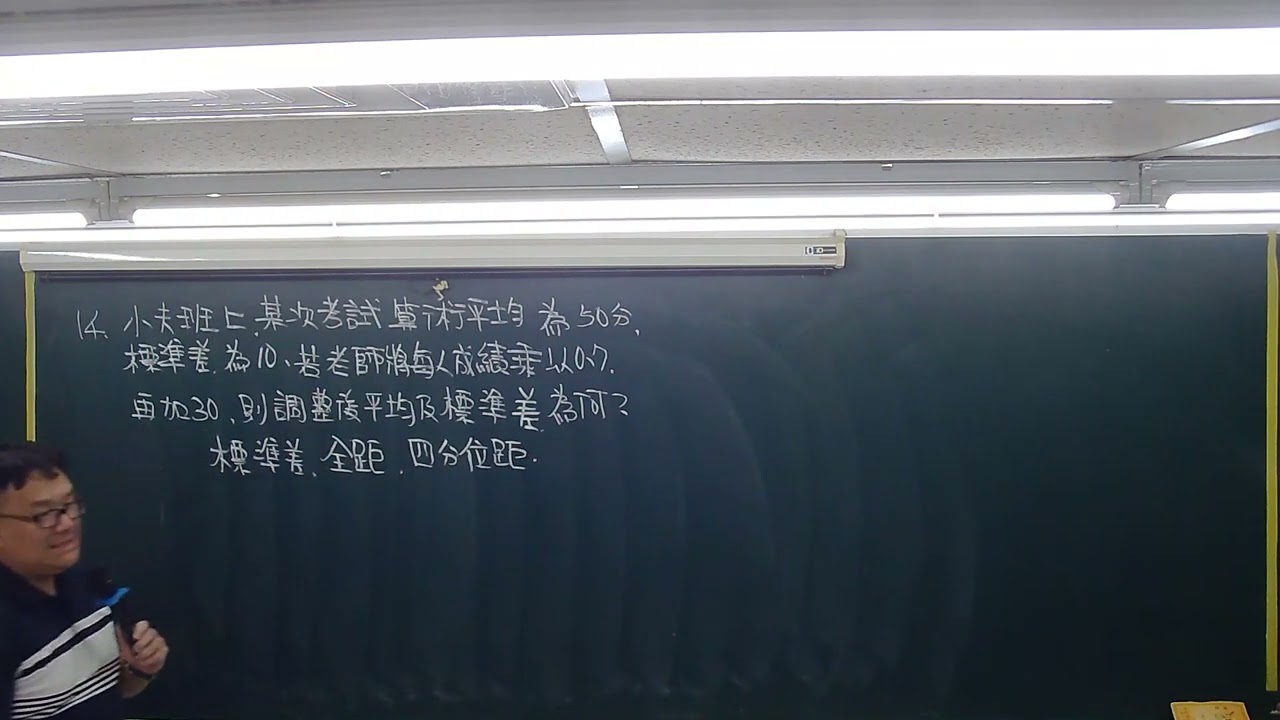 14. 小夫班上某次考試算術平均為50分,
標準差為10、若老師將每人成績乘以0.7,
再加30、則調整後平均及標準差為何?
標準差、全距、四分位距.